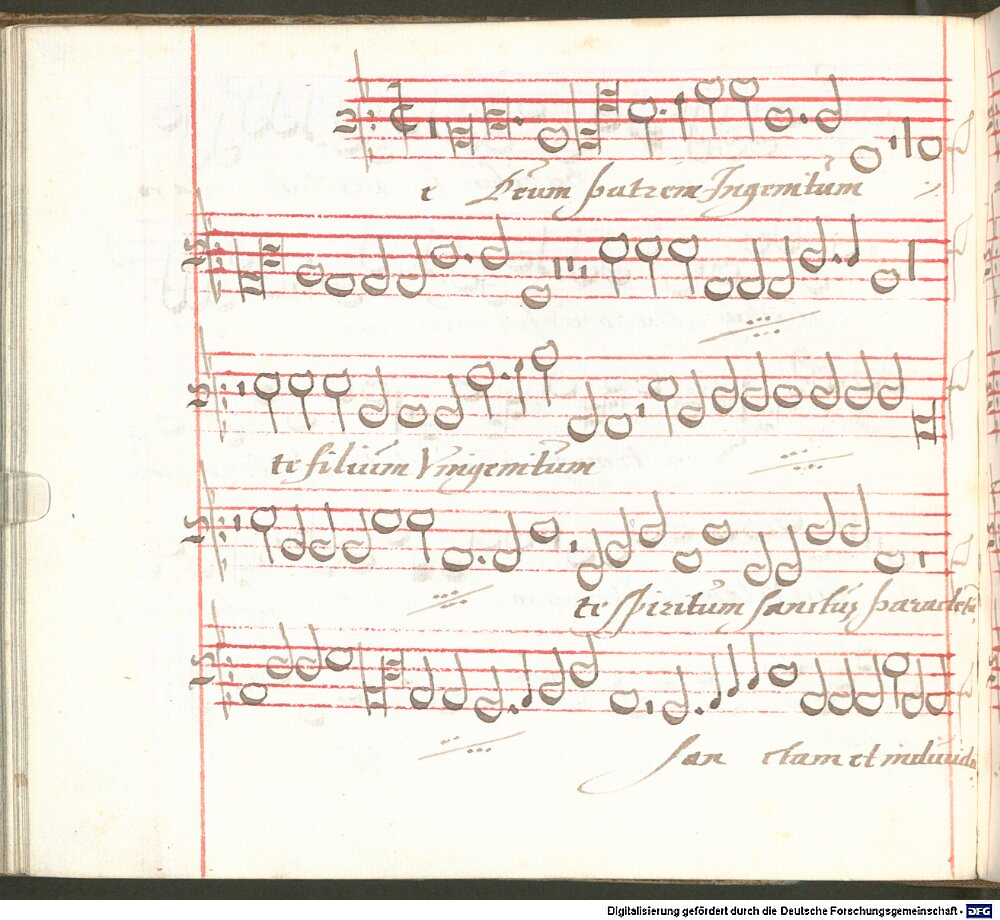 e Deum patrem Ingenitum
te filium Vnigenitum
te spiritum sanctus paracletu
san ctam et indiuidu
Digitalisierung gefördert durch die Deutsche Forschungsgemeinschaft - DFG